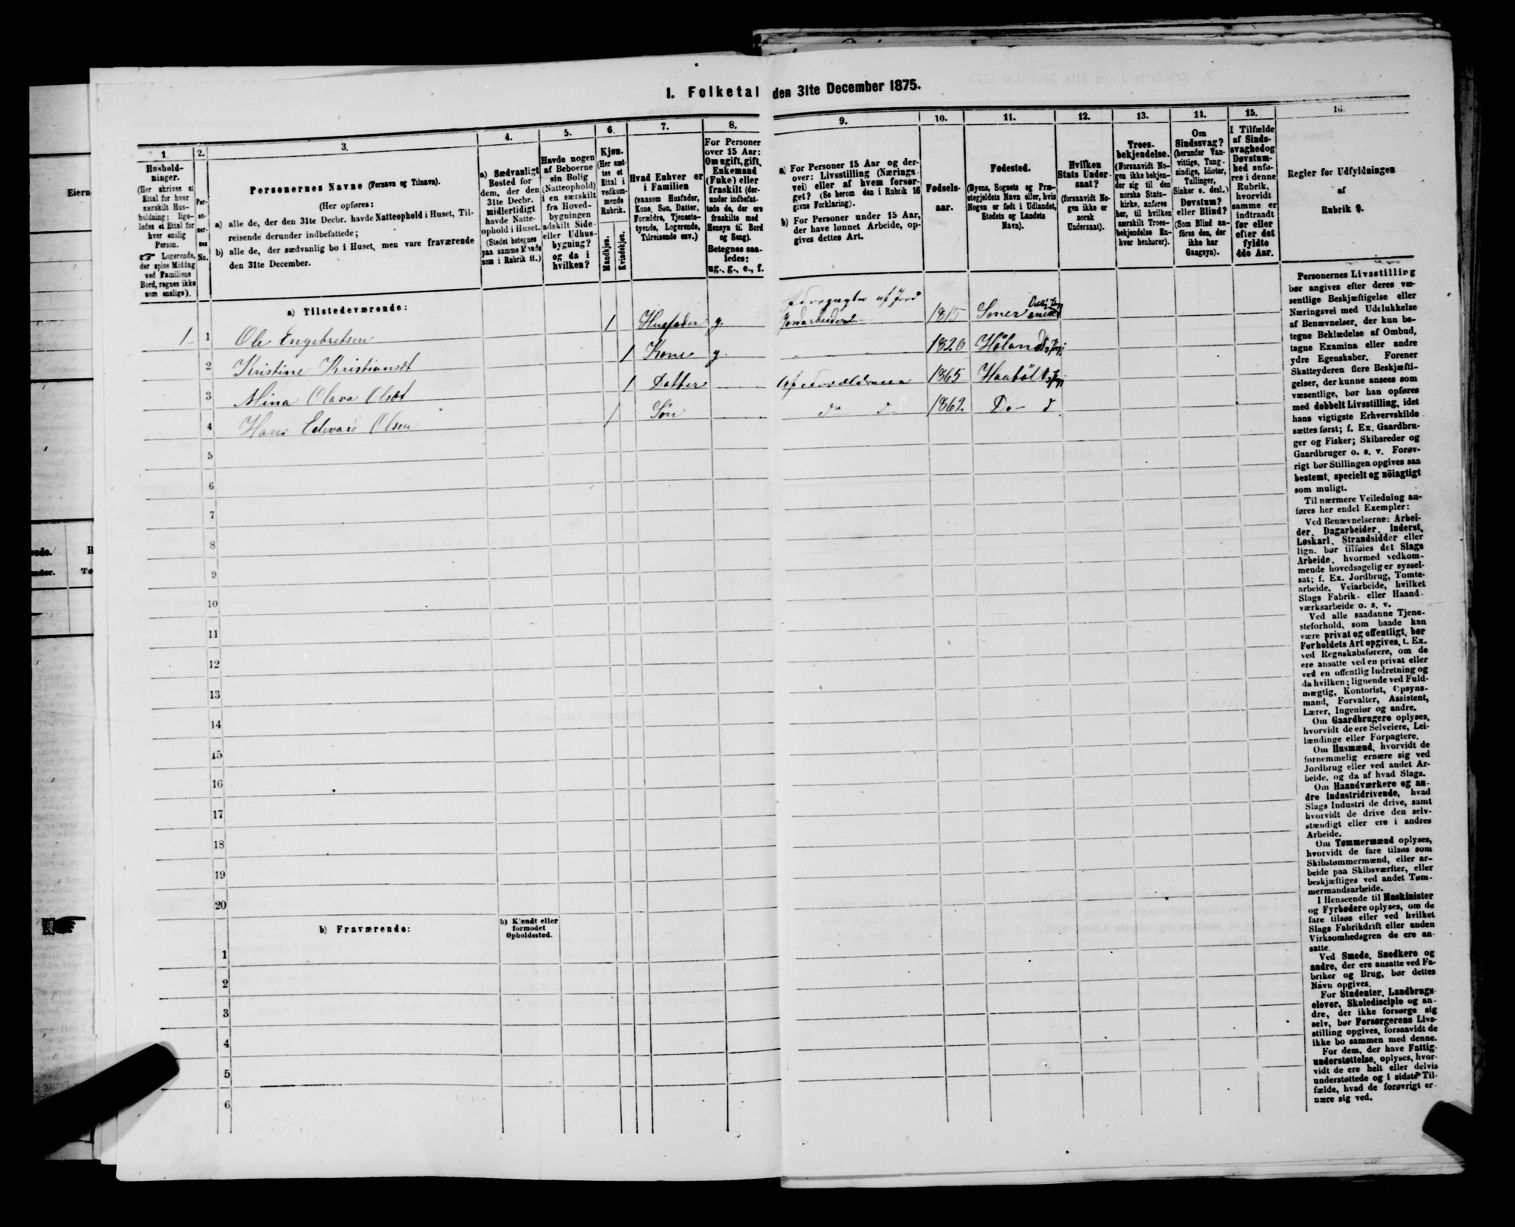 1. Folketal den 31te December 1875.
1.
Hushold-
ninger.
(Her skrives et
Ettal for hver
særskilt Hus-
holdning; lige-
ledes et Ettal for
hver enslig
Person.
Logerende,
der spise Middag
ved Familiens
Bord, regnes ikke
som enslige).
2.
Per-
so-
ner-
nes
No.
3.
Personernes Navne (Fornavn og Tilnavn).
(Her opføres:
a) alle de, der den 31te Decbr. havde Natteophold i Huset, Til-
reisende derunder indbefattede;
b) alle de, der sædvanlig bo i Huset, men vare fraværende
den 31te December.
4.
a) Sædvanligt
Bosted for
dem, der den
31te Decbr.
midlertidigt
havde Natte-
ophold i Huset.
(Stedet betegnes
paa samme Maade
som i Rubrik 11.)
5.
Havde nogen
af Beboerne
sin Bolig
(Natteophold)
i en særskilt
fra Hoved-
bygningen
adskilt Side-
eller Udhus-
bygning?
og da i
hvilken?
6.
Kjøn.
(Her sæt-
tes et
Ettal i
vedkom-
mende
Rubrik.
Mandkjøn.
Kvindekjøn.
7.
Hvad Enhver er
i Familien
(saasom Husfader,
Kone, Søn, Datter,
Forældre, Tjeneste-
tyende, Logerende,
Tilreisende osv.)
8.
For Personer
over 15 Aar:
Om ugift, gift,
Enkemand
(Enke) eller
fraskilt (der-
under indbefat-
tede de, der ere
fraskilte med
Hensyn til Bord
og Seng).
Betegnes saa-
ledes:
ug., g., e., f.
9.
a) For Personer 15 Aar og der-
over: Livsstilling (Nærings-
vei) eller af hvem forsør-
get? (Se herom den i Rubrik 16
givne Forklaring).
b) For Personer under 15 Aar,
der have lønnet Arbeide, op-
gives dettes Art.
10.
Fødsels-
aar.
11.
Fødested.
(Byens, Sognets og Præ-
stegjeldets Navn eller, hvis
Nogen er født i Udlandet,
Stedets og Landets
Navn).
12.
Hvilken
Stats Under-
saat?
(forsaavidt No-
gen ikke er
norsk
Undersaat).
13.
Troes-
bekjendelse.
(Forsaavidt No-
gen ikke bekjen-
der sig til den
norske Stats-
kirke, anføres
her, til hvilken
særskilt Troes-
bekjendelse En-
hver henhører).
14.
Om
Sindssvag?
(herunder Van-
vittige, Tung-
sindige, Idioter,
Tullinger,
Sinker o. desl.)
Døvstum?
eller Blind?
(Som Blind an-
føres den, der
ikke har
Gangsyn).
15.
I Tilfælde
af Sinds-
svaghed og
Døvstum-
hed anfø-
res i denne
Rubrik,
hvorvidt
samme er
indtraadt
før eller
efter det
fyldte
4de Aar.
16.
Regler for Udfyldningen
af
Rubrik 9.
a) Tilstedeværende:
1 1 Ole Engebretsen 1 Husfader g. Forpagter af Jord
Jordarbeider 1815
2 Kristine Kristiansdt 1 Kone g. 1820 Høland
3 Mina Olava Olsdt 1 Datter 1865 Haabøl
4 Hans Edvard Olsen 1 Søn do d 1862 Do d
5
6
7
8
9
10
11
12
13
14
15
16
17
18
19
20
b) Fraværende:
b) Kjendt eller
formodet
Opholdssted.
1
2
3
4
5
6
Personernes Livsstilling
bør angives efter deres væ-
sentlige Beskjæftigelse eller
Næringsvei med Udelukkelse
af Benævnelser, der kun be-
tegne Beklædelse af Ombud,
tagne Examina eller andre
ydre Egenskaber. Forener
Skatteyderen flere Beskjæfti-
gelser, der kunne ansees som
væsentlige, bør han opføres
med dobbelt Livsstilling, idet
hans vigtigste Erhvervskilde
sættes først; f. Ex. Gaardbru-
ger og Fisker; Skibsreder og
Gaardbruger o. s. v. Forøv-
rigt bør Stillingen opgives saa
bestemt, specielt og nøiagtigt
som muligt.
Til nærmere Veiledning an-
føres her endel Exempler:
Ved Benævnelserne: Arbei-
der, Dagarbeider, Inderst,
Løskarl, Strandsidder eller
lign. bør tilføies det Slags
Arbeide, hvormed vedkom-
mende hovedsagelig er syssel-
sat; f. Ex. Jordbrug, Tomte-
arbeide, Veiarbeide, hvilket
Slags Fabrik- eller Haand-
værksarbeide o. s. v.
Ved alle saadanne Tjene-
steforhold, som baade kan
være privat og offentligt, bør
Forholdets Art opgives, t. Ex.
ved Regnskabsførere, om de
ere ansatte ved en privat eller
ved en offentlig Indretning og
da hvilken; lignende ved Fuld-
mægtig, Kontorist, Opsyns-
mand, Forvalter, Assistent,
Lærer, Ingeniør og andre.
Om Gaardbrugere oplyses,
hvorvidt de ere Selveiere, Lei-
lændinge eller Forpagtere.
Om Husmænd, hvorvidt de
fornemmelig ernære sig ved
Jordbrug eller ved andet Ar-
beide, og da af hvad Slags.
Om Haandværkere og an-
dre Industridrivende, hvad
Slags Industri de drive, samt
hvorvidt de drive den selv-
stændigt eller ere i andres
Arbeide.
Om Tømmermænd oplyses,
hvorvidt de fare tilsøs som
Skibstømmermænd, eller ar-
beide paa Skibsværfter, eller
beskjæftiges ved andet Tøm-
mermandsarbeide.
I Henseende til Maskinister
og Fyrbødere oplyses, om de
fare tilsøs eller ved hvilket
Slags Fabrikdrift eller anden
Virksomhedsgren de ere an-
satte.
Ved Smede, Snedkere og
andre, der ere ansatte ved Fa-
briker og Brug, bør dettes
Navn opgives.
For Studenter, Landbrugs-
elever, Skoledisciple og an-
dre, der ikke forsørge sig
selv, bør Forsørgerens Livs-
stilling opgives, forsaavidt de
ikke bo sammen med denne.
For dem, der have Fattig-
understøttelse, oplyses, hvor-
vidt de ere helt eller delvis
understøttede og i sidste Til-
fælde, hvad de forøvrigt er-
nære sig ved.